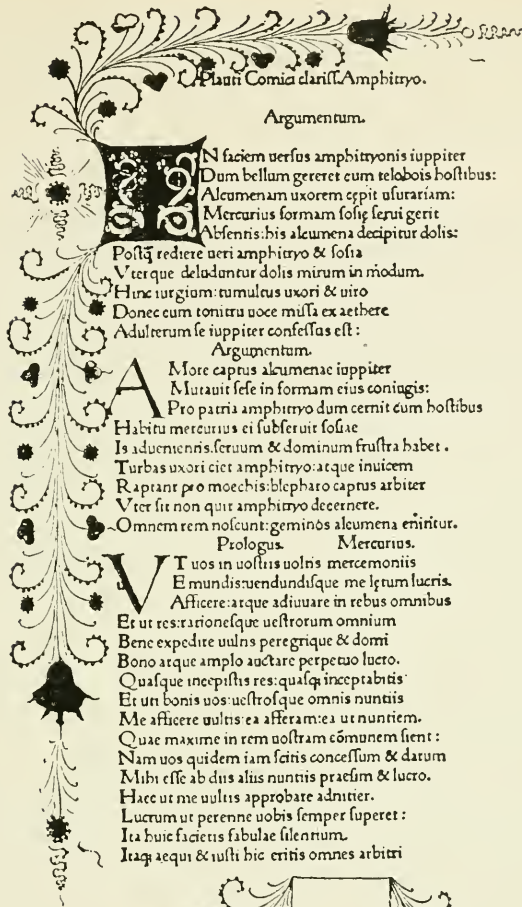 Plauti Comici clariſſ. Amphitryo.
Argumentum.
IN faciem uerſus amphitryonis iuppiter
Dum bellum gereret cum telobois hoſtibus:
Alcumenam uxorem cępit uſurariam:
Mercurius formam ſoſię ſerui gerit
Abſentis: his alcumena decipitur dolis:
Poſtq̃ rediere ueri amphitryo & ſoſia
Vterque deluduntur dolis mirum in modum.
Hinc iurgium: tumultus uxori & uiro
Donec cum tonitru uoce miſſa ex aethere
Adulterum ſe iuppiter confeſſus eſt:
Argumentum.
AMore captus alcumenae iuppiter
Mutauit ſeſe in formam eius coniugis:
Pro patria amphitryo dum cernit cum hoſtibus
Habitu mercurius ei ſubſeruit ſoſiae
Is aduenientis. ſeruum & dominum fruſtra habet.
Turbas uxori ciet amphitryo: atque inuicem
Raptant pro moechis: blepharo captus arbiter
Vter ſit non quit amphitryo decernere.
Omnem rem noſcunt: geminos alcumena enititur.
Prologus. Mercurius.
VT uos in uoſtris uoltis mercemoniis
Emundis: uendundiſque me lętum lucris.
Afficere: atque adiuuare in rebus omnibus
Et ut res: rationeſque ueſtrorum omnium
Bene expedire uultis peregrique & domi
Bono atque amplo auctare perpetuo lucro.
Quaſque incepiſtis res: quaſq; inceptabitis
Et uti bonis uos: ueſtroſque omnis nuntiis
Me afficere uultis: ea afferam: ea ut nuntiem.
Quae maxime in rem uoſtram cõmunem ſient:
Nam uos quidem iam ſcitis conceſſum & datum
Mihi eſſe ab diis aliis nuntiis praeſim & lucro.
Haec ut me uultis approbare adnitier.
Lucrum ut perenne uobis ſemper ſuperet:
Ita huic facietis fabulae ſilentium.
Itaq; aequi & iuſti hic eritis omnes arbitri